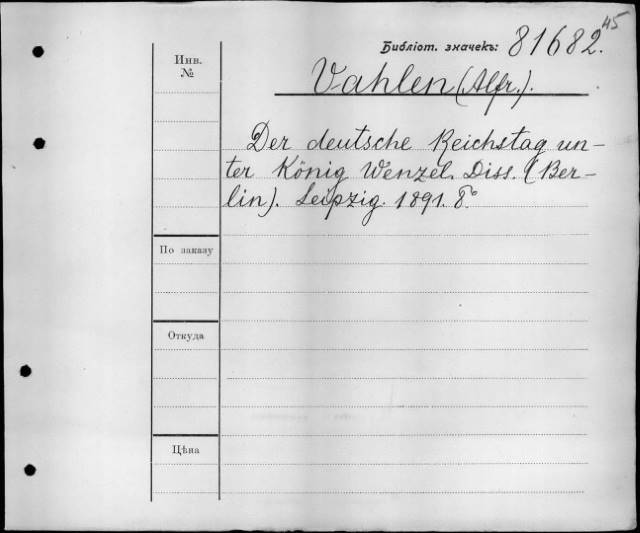 45
Библіот. значекъ: 81682.
Инв.
№
Vahlen (Alfr.).
Der deutsche Reichstag un-
ter König Wenzel. Diss. (Ber-
lin). Leipzig. 1891. 8°
По заказу
Откуда
Цѣна